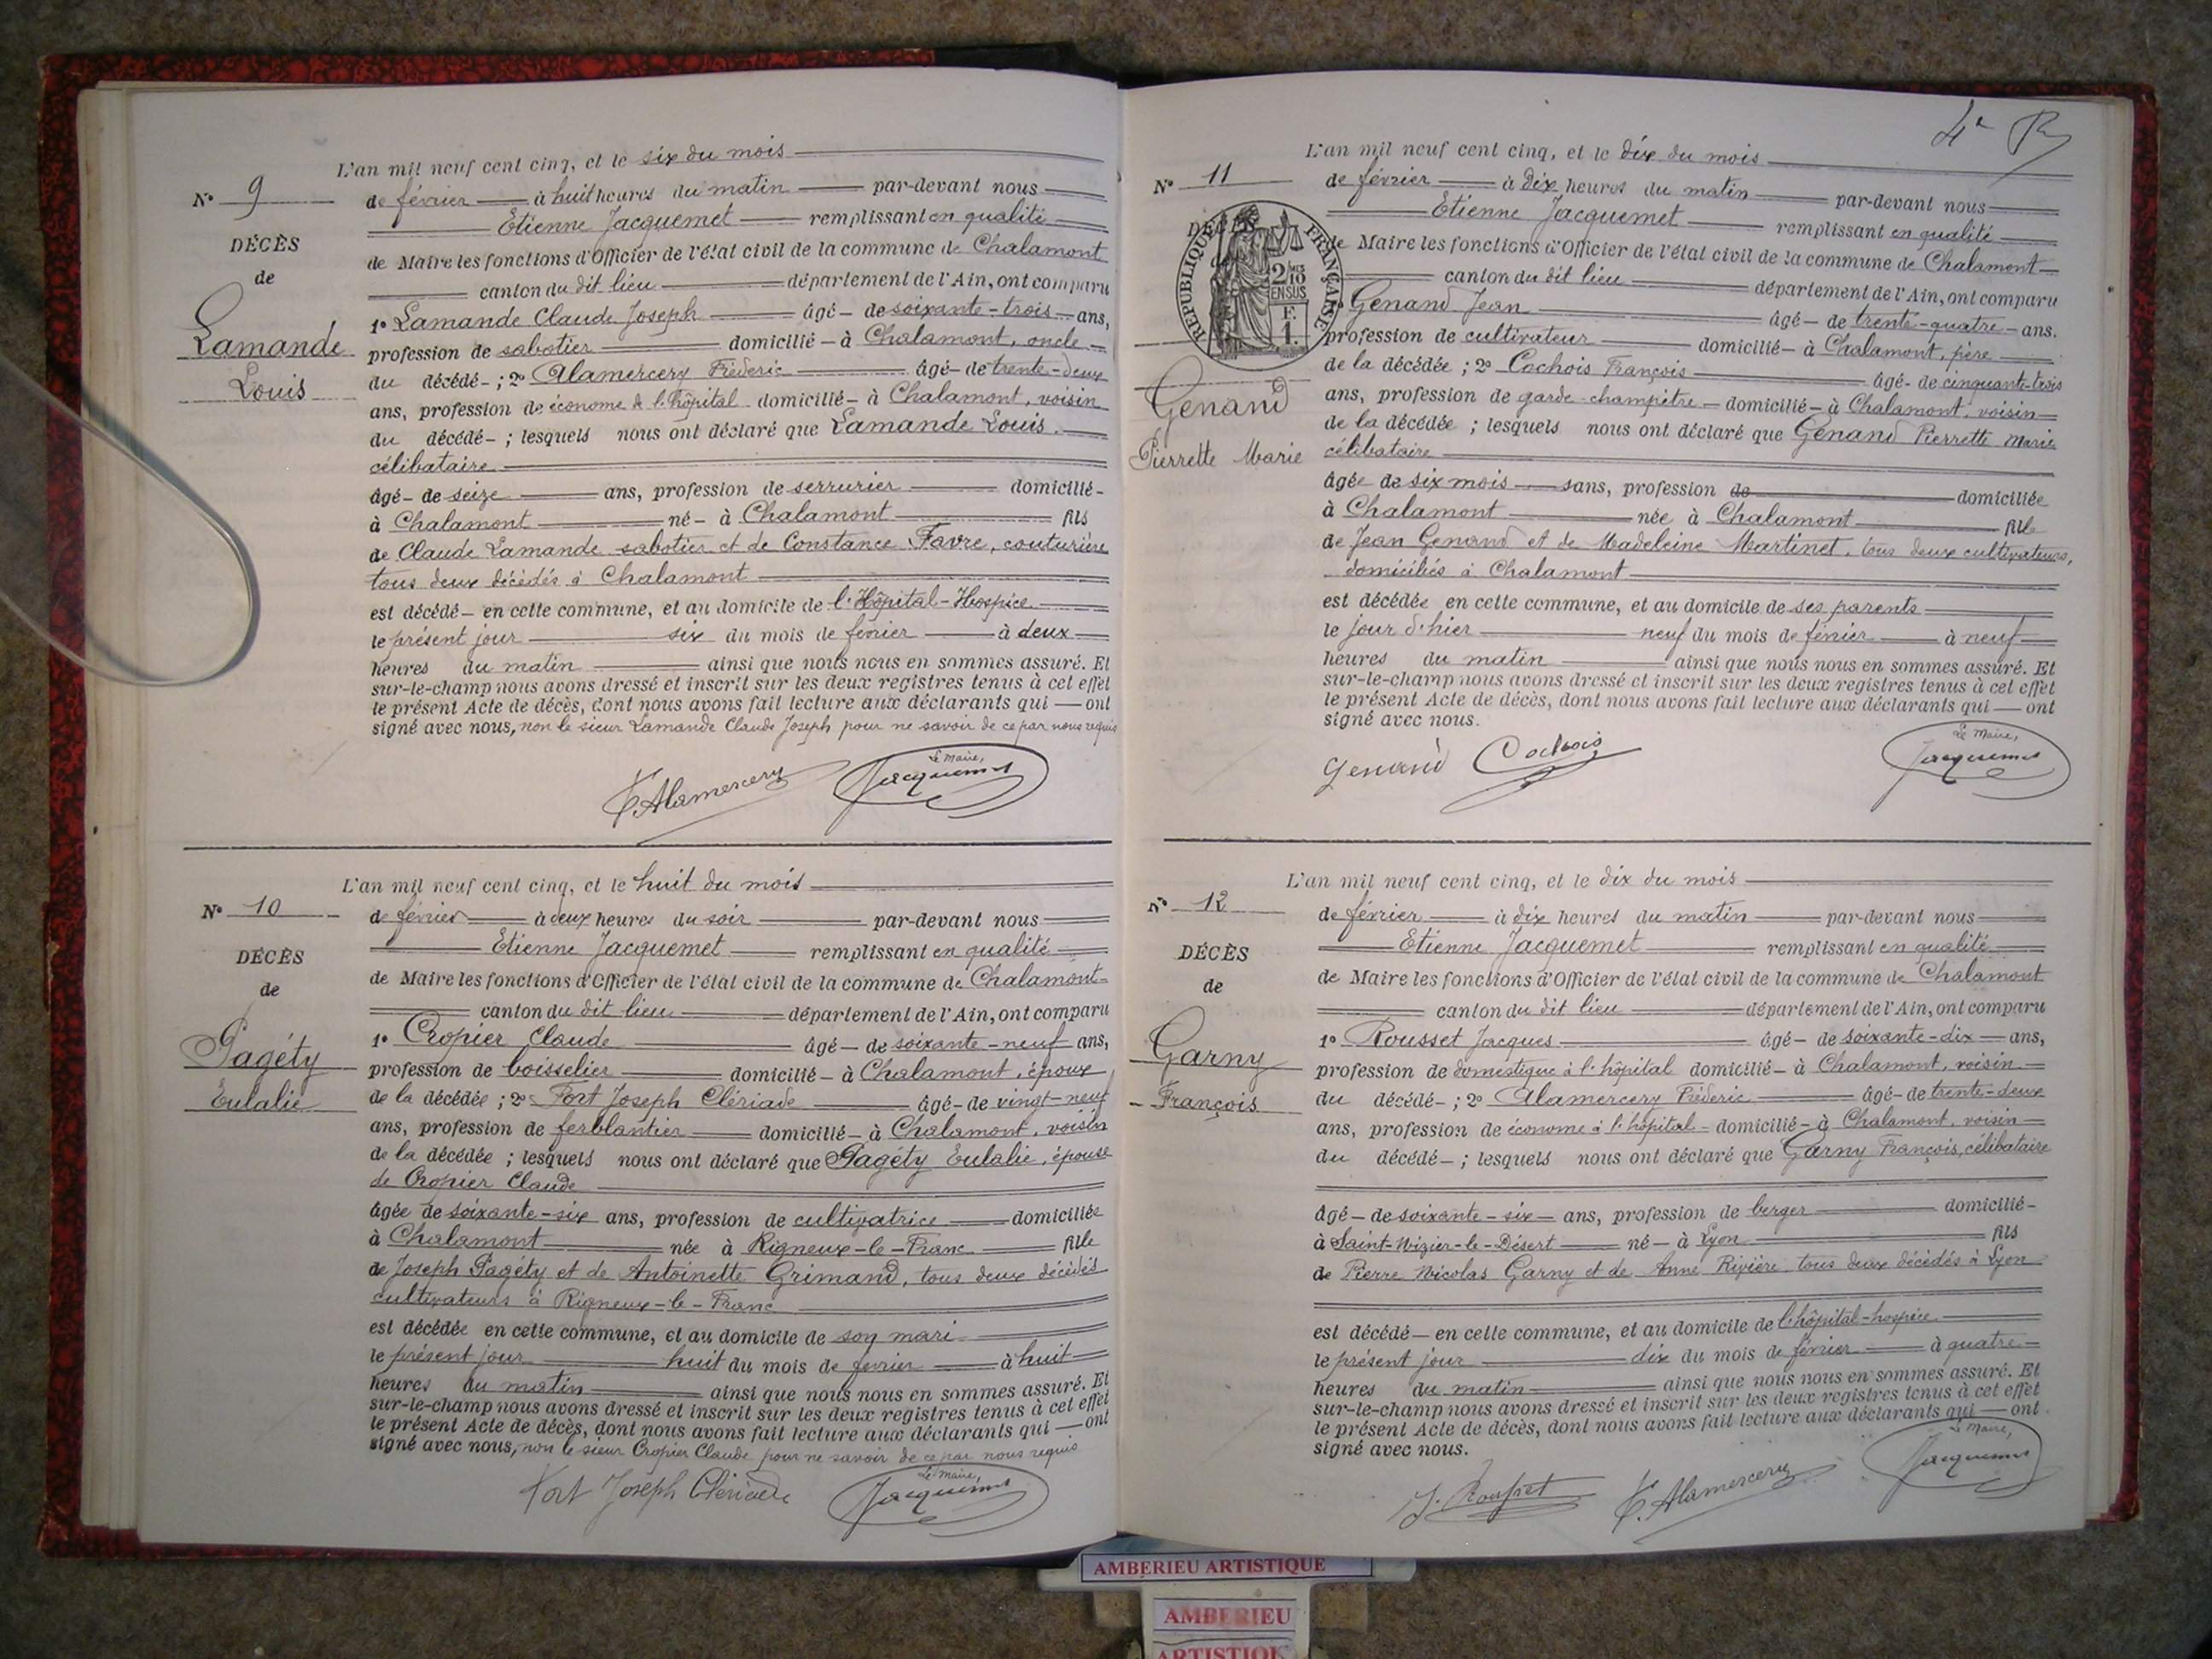 L'an mil neuf cent cinq, et le six du mois
N° 9
de février à huit heures du matin par-devant nous
Etienne Jacquemet remplissant en qualité
DÉCÈS
de Maire les fonctions d'Officier de l'état civil de la commune de Chalamont
de
canton du dit lieu département de l'Ain, ont comparu
Lamande
Louis
1° Lamande Claude Joseph âgé de soixante-trois ans,
profession de sabotier domicilié à Chalamont, oncle
du décédé ; 2° Alamercery Fréderic âgé de trente-deux
ans, profession de économe à l'hôpital domicilié à Chalamont, voisin
du décédé ; lesquels nous ont déclaré que Lamande Louis.
célibataire
âgé de seize ans, profession de serrurier domicilié
à Chalamont né à Chalamont fils
de Claude Lamande sabotier et de Constance Favre, couturière
tous deux décédés à Chalamont
est décédé en cette commune, et au domicile de l'Hôpital-Hospice
le présent jour six du mois de février à deux
heures du matin ainsi que nous nous en sommes assuré. Et
sur-le-champ nous avons dressé et inscrit sur les deux registres tenus à cet effet
le présent Acte de décès, dont nous avons fait lecture aux déclarants qui ont
signé avec nous, non le sieur Lamande Claude Joseph pour ne savoir de ce par nous requis
F. Alamercery
Le Maire,
Jacquemet
L'an mil neuf cent cinq, et le huit du mois
N° 10
de février à deux heures du soir par-devant nous
Etienne Jacquemet remplissant en qualité
DÉCÈS
de Maire les fonctions d'Officier de l'état civil de la commune de Chalamont
de
canton du dit lieu département de l'Ain, ont comparu
Pagéty
Eulalie
1° Cropier Claude âgé de soixante-neuf ans,
profession de boisselier domicilié à Chalamont, époux
de la décédée ; 2° Fort Joseph Clériade âgé de vingt-neuf
ans, profession de ferblantier domicilié à Chalamont, voisin
de la décédée ; lesquels nous ont déclaré que Pagéty Eulalie, épouse
de Cropier Claude
âgée de soixante-six ans, profession de cultivatrice domiciliée
à Chalamont née à Rigneux-le-Franc fille
de Joseph Pagéty et de Antoinette Grimand, tous deux décédés
cultivateurs à Rigneux-le-Franc
est décédée en cette commune, et au domicile de son mari
le présent jour huit du mois de février à huit
heures du matin ainsi que nous nous en sommes assuré. Et
sur-le-champ nous avons dressé et inscrit sur les deux registres tenus à cet effet
le présent Acte de décès, dont nous avons fait lecture aux déclarants qui ont
signé avec nous, non le sieur Cropier Claude pour ne savoir de ce par nous requis
Fort Joseph Clériade
Le Maire,
Jacquemet
4e
L'an mil neuf cent cinq, et le dix du mois
N° 11
de février à dix heures du matin par-devant nous
Etienne Jacquemet remplissant en qualité
DÉCÈS
RÉPUBLIQUE FRANÇAISE
2/10
EN SUS
F.
1.
de Maire les fonctions d'Officier de l'état civil de la commune de Chalamont
canton du dit lieu département de l'Ain, ont comparu
Genand
Pierrette Marie
1° Genand Jean âgé de trente-quatre ans.
profession de cultivateur domicilié à Chalamont, père
de la décédée ; 2° Cochois François âgé de cinquante-trois
ans, profession de garde-champêtre domicilié à Chalamont, voisin
de la décédée ; lesquels nous ont déclaré que Genand Pierrette Marie
célibataire
âgée de six mois sans, profession de domiciliée
à Chalamont née à Chalamont fille
de Jean Genand et de Madeleine Martinet, tous deux cultivateurs,
domiciliés à Chalamont
est décédée en cette commune, et au domicile de ses parents
le jour d'hier neuf du mois de février à neuf
heures du matin ainsi que nous nous en sommes assuré. Et
sur-le-champ nous avons dressé et inscrit sur les deux registres tenus à cet effet
le présent Acte de décès, dont nous avons fait lecture aux déclarants qui ont
signé avec nous.
Genand Cochois
Le Maire,
Jacquemet
L'an mil neuf cent cinq, et le dix du mois
N° 12
de février à dix heures du matin par-devant nous
Etienne Jacquemet remplissant en qualité
DÉCÈS
de Maire les fonctions d'Officier de l'état civil de la commune de Chalamont
de
canton du dit lieu département de l'Ain, ont comparu
Garny
François
1° Rousset Jacques âgé de soixante-dix ans,
profession de domestique à l'hôpital domicilié à Chalamont, voisin
du décédé ; 2° Alamercery Fréderic âgé de trente-deux
ans, profession de économe à l'hôpital domicilié à Chalamont, voisin
du décédé ; lesquels nous ont déclaré que Garny François, célibataire
âgé de soixante-six ans, profession de berger domicilié
à Saint-Nizier-le-Désert né à Lyon fils
de Pierre Nicolas Garny et de Anne Rivière tous deux décédés à Lyon
est décédé en cette commune, et au domicile de l'hôpital-hospice
le présent jour dix du mois de février à quatre
heures du matin ainsi que nous nous en sommes assuré. Et
sur-le-champ nous avons dressé et inscrit sur les deux registres tenus à cet effet
le présent Acte de décès, dont nous avons fait lecture aux déclarants qui ont
signé avec nous.
J. Rousset F. Alamercery
Le Maire,
Jacquemet
AMBERIEU ARTISTIQUE
AMBERIEU